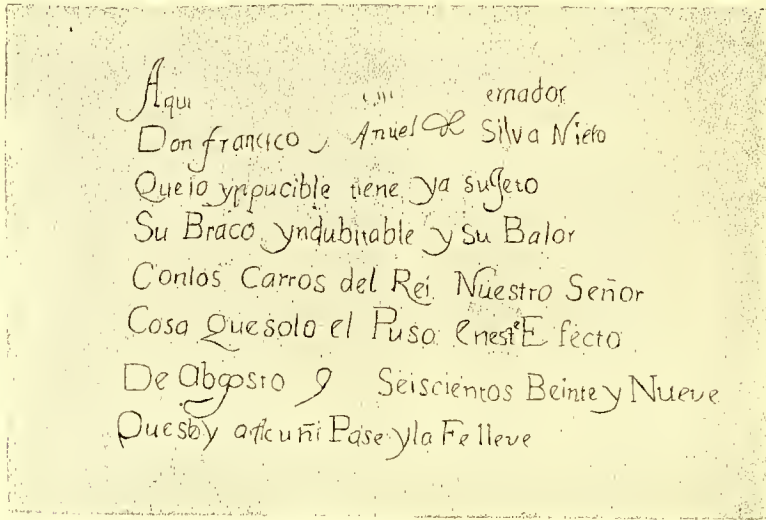 Aqui ernador
Don francico Anuel De Silva Nieto
Que io ynpucible tiene ya sugeto
Su Braco yndubitable y Su Balor
Conlos Carros del Rei Nuestro Señor
Cosa Que solo el Puso EnestE fecto
De Abgosto 9 Seiscientos Beinte y Nueve
Quesby a Cuñi Pase y la Fe lleve